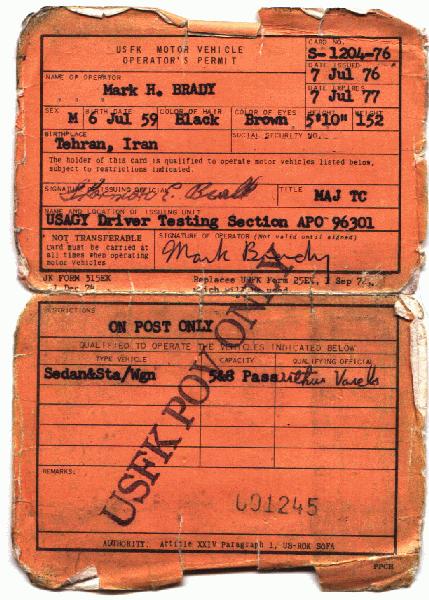 USFK MOTOR VEHICLE
OPERATOR'S PERMIT
CARD NO.
S-1204-76
DATE ISSUED
7 Jul 76
NAME OF OPERATOR
Mark H. BRADY
DATE EXPIRES
7 Jul 77
SEX
M
BIRTH DATE
6 Jul 59
COLOR OF HAIR
Black
COLOR OF EYES
Brown
HEIGHT
5'10"
WEIGHT
152
BIRTHPLACE
Tehran, Iran
SOCIAL SECURITY NO.
The holder of this card is qualified to operate motor vehicles listed below,
subject to restrictions indicated.
SIGNATURE OF ISSUING OFFICIAL
TITLE
MAJ TC
NAME AND LOCATION OF ISSUING UNIT
USAGY Driver Testing Section APO 96301
NOT TRANSFERABLE
Card must be carried at
all times when operating
motor vehicles
SIGNATURE OF OPERATOR (Not valid until signed)
Mark Brady
JK FORM 315EK
Replaces USFK Form 25EK, 1 Sep
RESTRICTIONS
ON POST ONLY
QUALIFIED TO OPERATE THE VEHICLES INDICATED BELOW
TYPE VEHICLE
CAPACITY
QUALIFYING OFFICIAL
Sedan&Sta/Wgn
5&8 Pass
USFK POV ONLY
REMARKS:
001245
AUTHORITY: Article XXIV Paragraph 1, US-ROK SOFA
PPCH